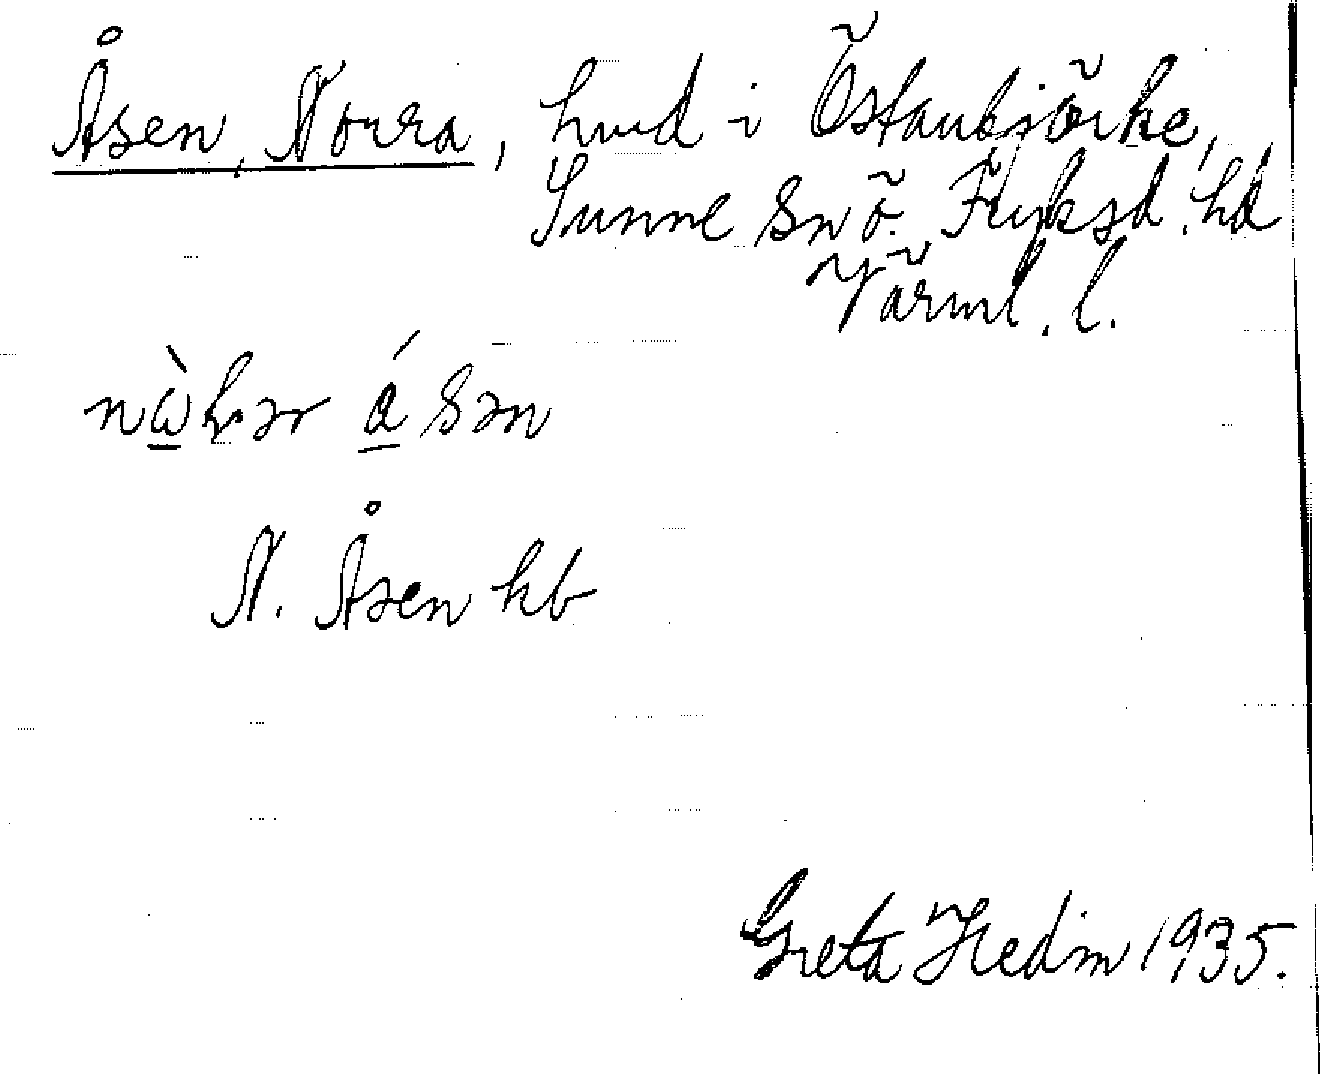 Åsen, Norra, hmd i Östanbjörke,
Sunne sn ö. Fryksd. hd
Värml. l.
nὼhər ásən
N. Åsen kb
Greta Hedin 1935.